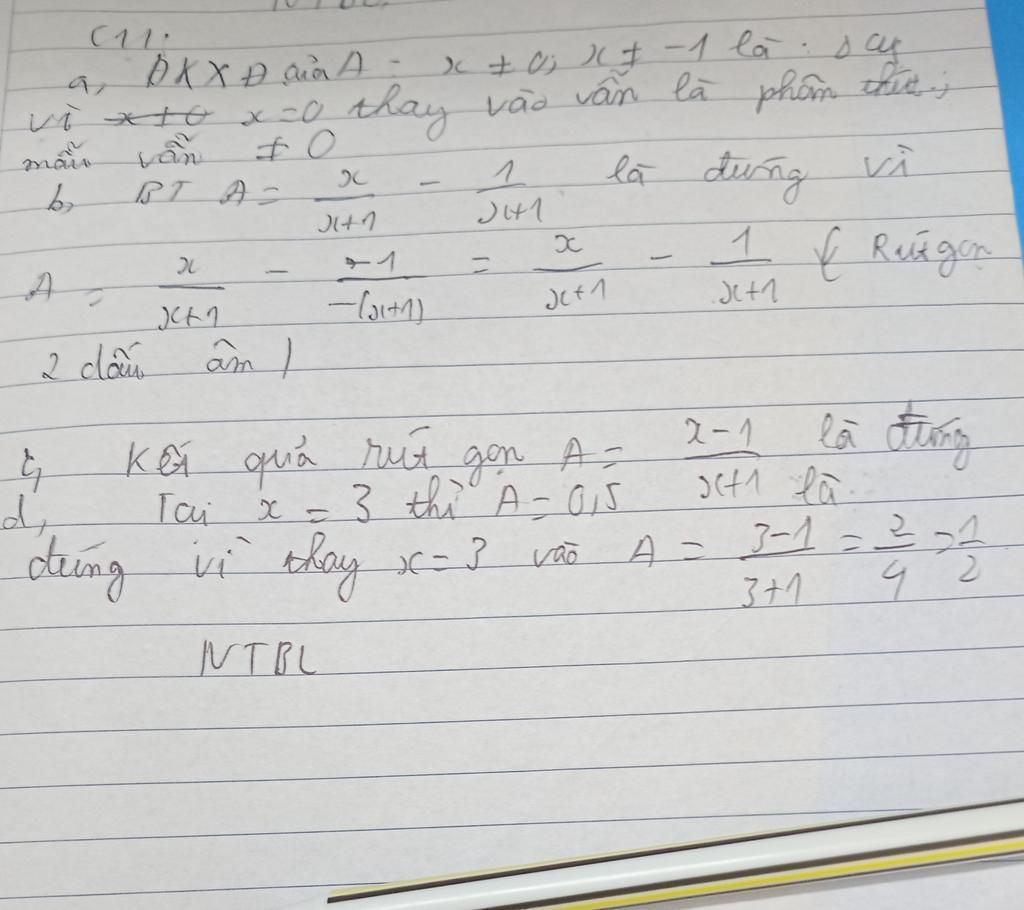 C11:
a, ĐKXĐ của A: x ≠ 0, x ≠ -1 là
vì x ≠ 0 x=0 thay vào vẫn là phân thức,
mẫu vẫn ≠ 0
b, BT A = x/(x+1) - 1/(x+1) là đúng vì
A = x/(x+1) - -1/-(x+1) = x/(x+1) - 1/(x+1) ( Rút gọn
2 dấu âm )
Kết quả rút gọn A = (x-1)/(x+1) là đúng
d, Tại x = 3 thì A = 0,5 là
đúng vì thay x=3 vào A = (3-1)/(3+1) = 2/4 = 1/2
NTBL